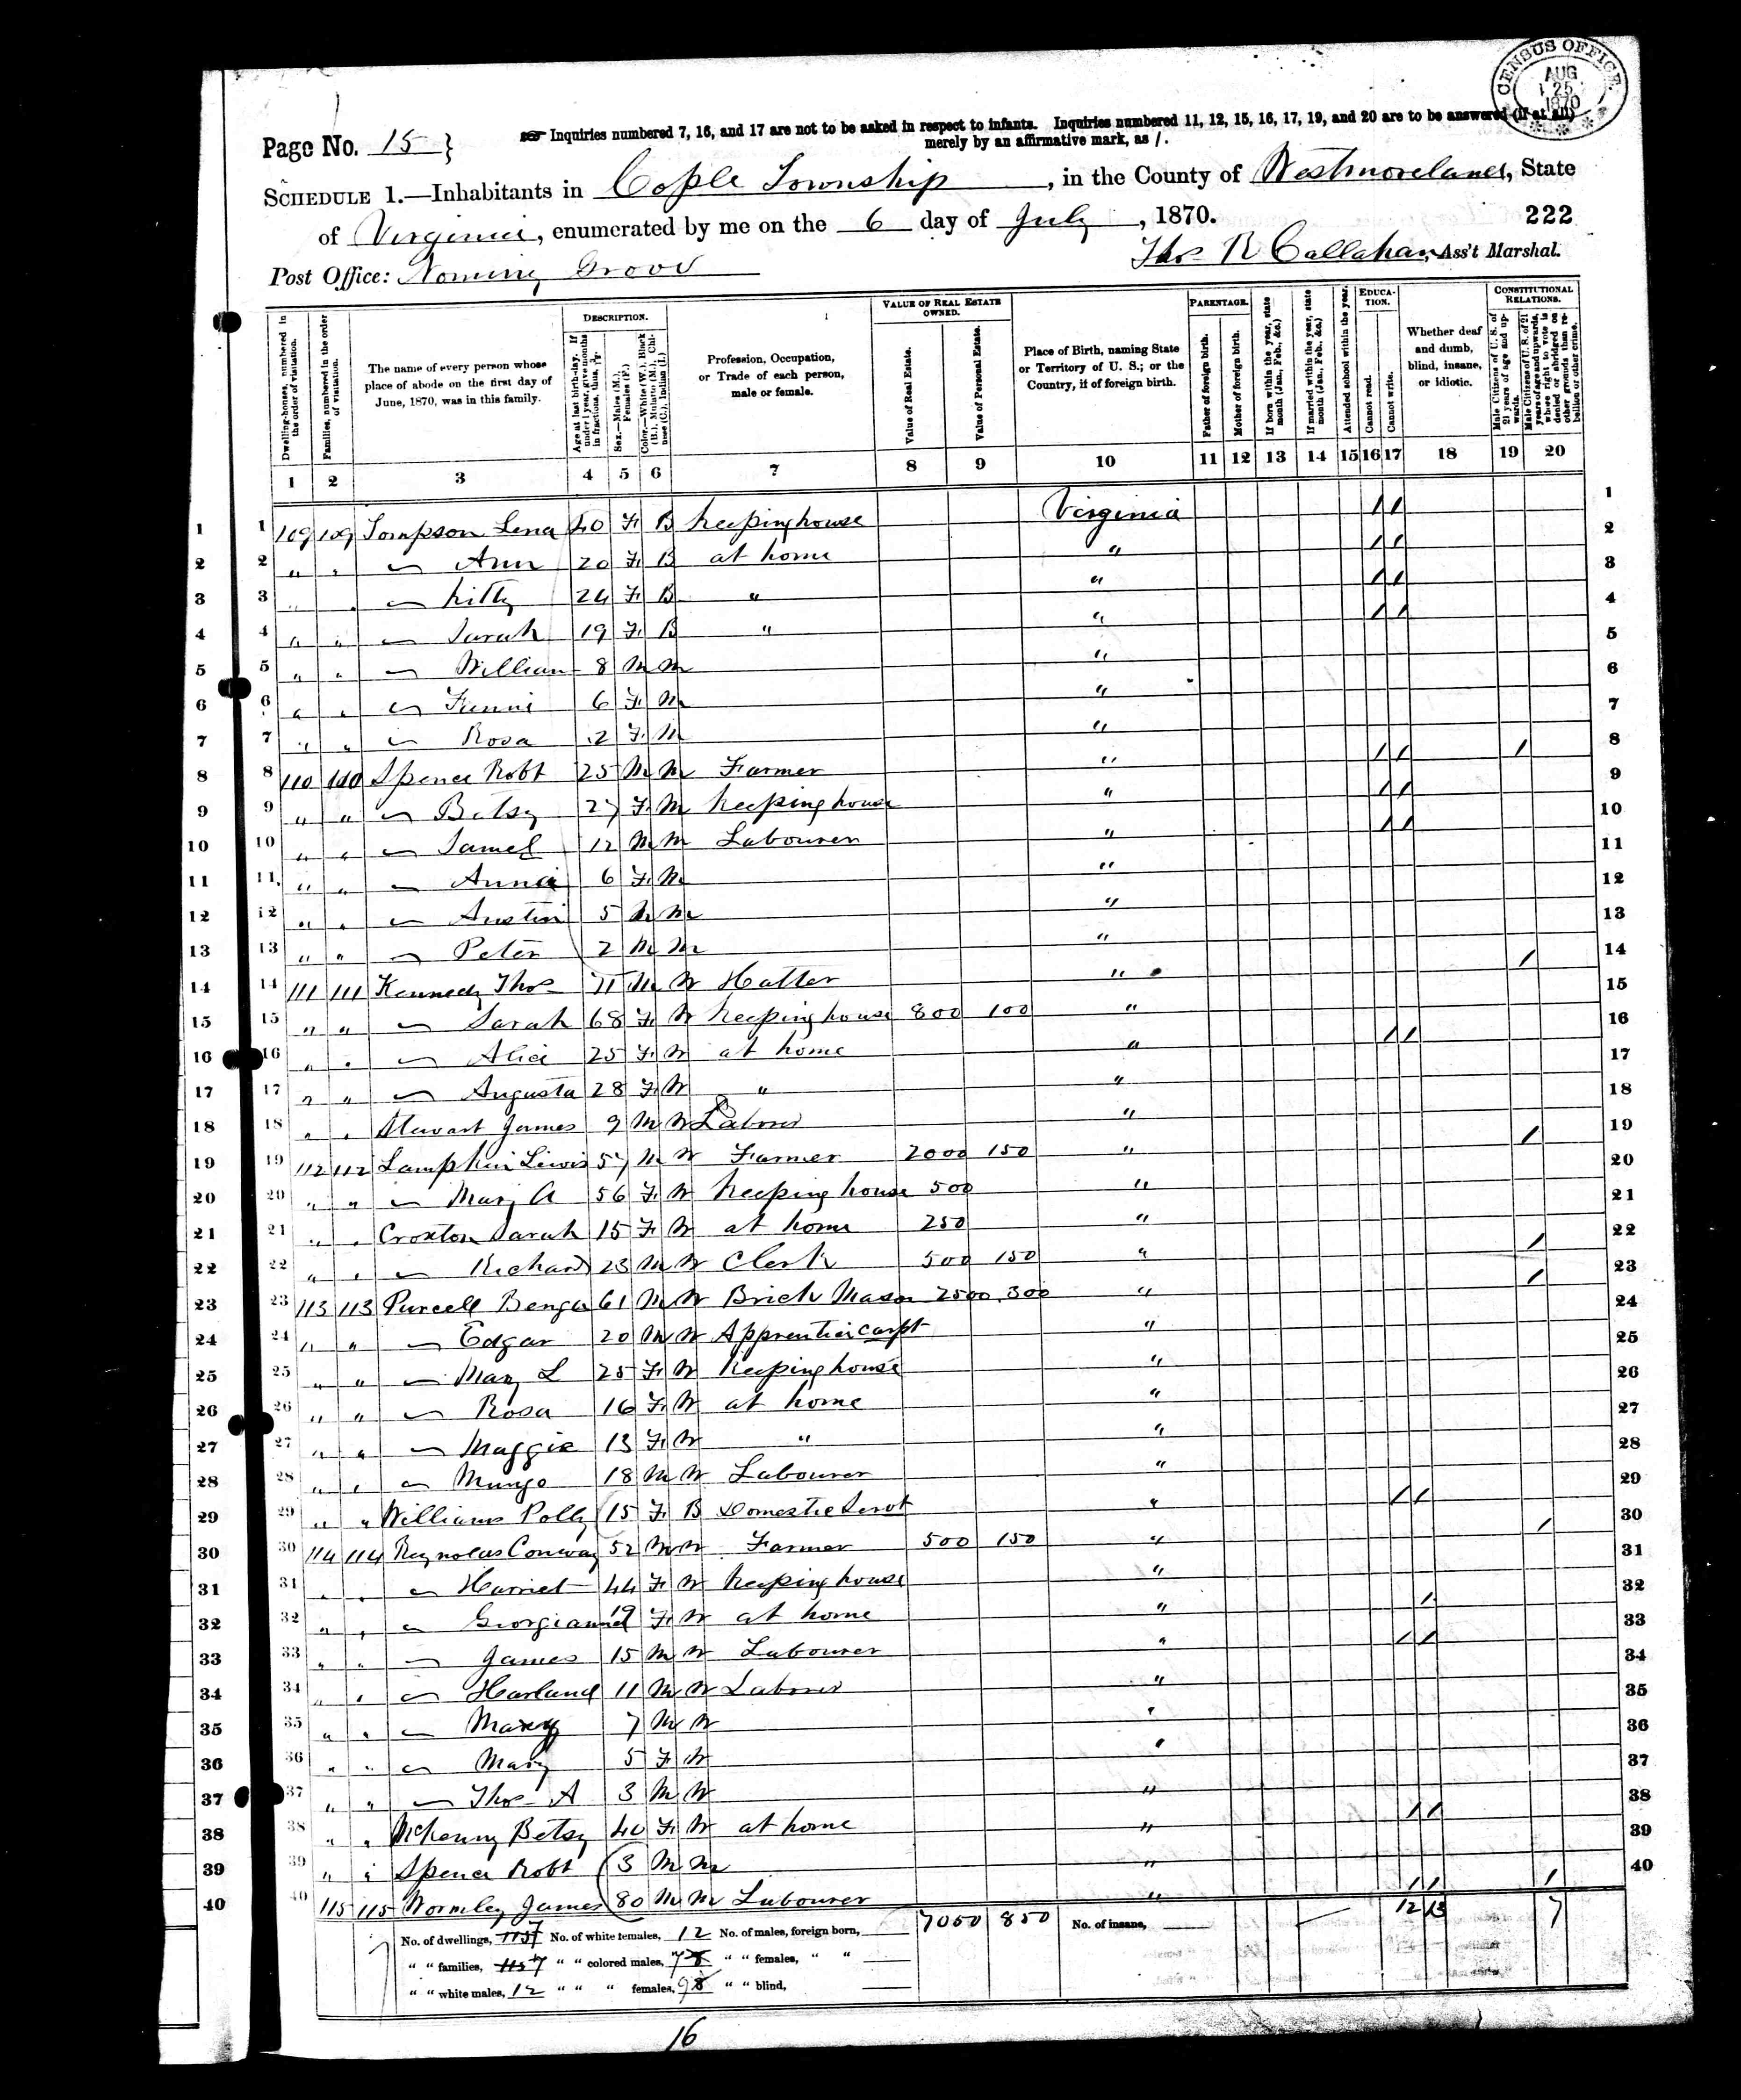 CENSUS OFFICE
AUG
25
1870
Page No. 15 }
Inquiries numbered 7, 16, and 17 are not to be asked in respect to infants. Inquiries numbered 11, 12, 15, 16, 17, 19, and 20 are to be answered (if at all)
merely by an affirmative mark, as /.
SCHEDULE 1.—Inhabitants in Cople Township, in the County of Westmoreland, State
of Virginia, enumerated by me on the 6 day of July, 1870.
222
Post Office: Nominy Grove
Thos R Callahan, Ass't Marshal.
Dwelling-houses, numbered in the order of visitation.
Families, numbered in the order of visitation.
The name of every person whose place of abode on the first day of June, 1870, was in this family.
DESCRIPTION.
Age at last birth-day. If under 1 year, give months in fractions, thus, 3/12.
Sex.—Males (M.), Females (F.)
Color.—White (W.), Black (B.), Mulatto (M.), Chinese (C.), Indian (I.)
Profession, Occupation, or Trade of each person, male or female.
VALUE OF REAL ESTATE OWNED.
Value of Real Estate.
Value of Personal Estate.
Place of Birth, naming State or Territory of U. S.; or the Country, if of foreign birth.
PARENTAGE.
Father of foreign birth.
Mother of foreign birth.
If born within the year, state month (Jan., Feb., &c.)
If married within the year, state month (Jan., Feb., &c.)
Attended school within the year.
EDUCATION.
Cannot read.
Cannot write.
Whether deaf and dumb, blind, insane, or idiotic.
CONSTITUTIONAL RELATIONS.
Male Citizens of U. S. of 21 years of age and upwards.
Male Citizens of U. S. of 21 years of age and upwards, whose right to vote is denied or abridged on other grounds than rebellion or other crime.
1 2 3 4 5 6 7 8 9 10 11 12 13 14 15 16 17 18 19 20
1 109 109 Tompson Lena 40 F B Keeping house Virginia / / 1
2 " " — Ann 20 F B at home " / / 2
3 " " — Kitty 24 F B " " / / 3
4 " " — Sarah 19 F B " " / / 4
5 " " — William 8 M M " 5
6 " " — Fanni 6 F M " 6
7 " " — Rosa 2 F M " 7
8 110 110 Spence Robt 25 M M Farmer " / / / 8
9 " " — Betsy 27 F M Keeping house " / / 9
10 " " — James 12 M M Labourer " / / 10
11 " " — Anna 6 F M " 11
12 " " — Austin 5 M M " 12
13 " " — Peter 2 M M " 13
14 111 111 Kennedy Thos 71 M W Hatter " / 14
15 " " — Sarah 68 F W Keeping house 800 100 " 15
16 " " — Alice 25 F W at home " / / 16
17 " " — Augusta 28 F W " " 17
18 " " Stewart James 9 M W Labour " 18
19 112 112 Lampkin Lewis 57 M W Farmer 2000 150 " / 19
20 " " — Mary A 56 F W Keeping house 500 " 20
21 " " Croxton Sarah 15 F W at home 250 " 21
22 " " — Richard 23 M W Clerk 500 150 " / 22
23 113 113 Purcell Benja 61 M W Brick Mason 2500 300 " / 23
24 " " — Edgar 20 M W Apprentice carpt " 24
25 " " — Mary L 25 F W Keeping house " 25
26 " " — Rosa 16 F W at home " 26
27 " " — Maggie 13 F W " " 27
28 " " — Mungo 18 M W Labourer " 28
29 " " Williams Polly 15 F B Domestic Servt " / / 29
30 114 114 Reynolds Conway 52 M W Farmer 500 150 " / 30
31 " " — Harriet 44 F W Keeping house " 31
32 " " — Georgianna 19 F W at home " / 32
33 " " — James 15 M W Labourer " / / 33
34 " " — Harland 11 M W Labour " 34
35 " " — 7 M W " 35
36 " " — Mary 5 F W " 36
37 " " — Thos A 3 M W " 37
38 " " McKenny Betsy 40 F W at home " / / 38
39 " " Spence Robt 3 M M " 39
40 115 115 Wormley James 80 M M Labourer " / / / 40
No. of dwellings, 7 No. of white females, 12 No. of males, foreign born, 7050 850 No. of insane, 12 13 7
" " families, 7 " " colored males, 7 " " females, " "
" " white males, 12 " " " females, 9 " " blind,
16